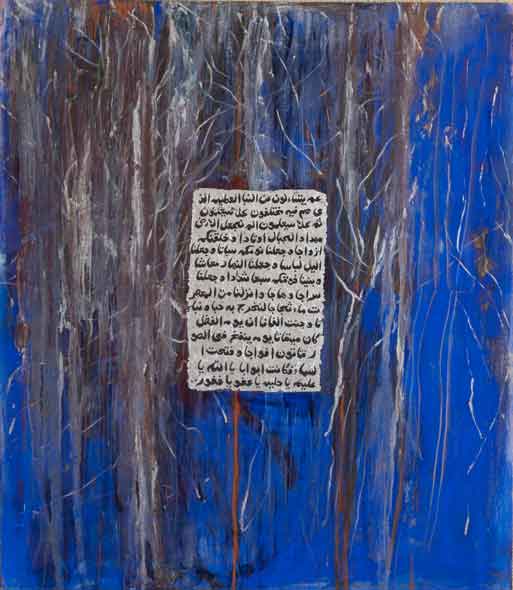 عم يتساءلون عن النبا العظيم الذ
ي هم فيه مختلفون كلا سيعلمون
ثم كلا سيعلمون الم نجعل الارض
مهدا والجبال اوتادا وخلقنكم
ازواجا وجعلنا نومكم سباتا وجعلنا
اليل لباسا وجعلنا النهار معاشا
وبنينا فوقكم سبعا شدادا وجعلنا
سراجا وهاجا وانزلنا من المعصر
ت ماء ثجاجا لنخرج به حبا ونبا
تا وجنت الفافا ان يوم الفصل
كان ميقاتا يوم ينفخ في الصو
ر فتاتون افواجا وفتحت ا
لسماء فكانت ابوابا يا الله يا
عليم يا حليم يا عفو يا غفور